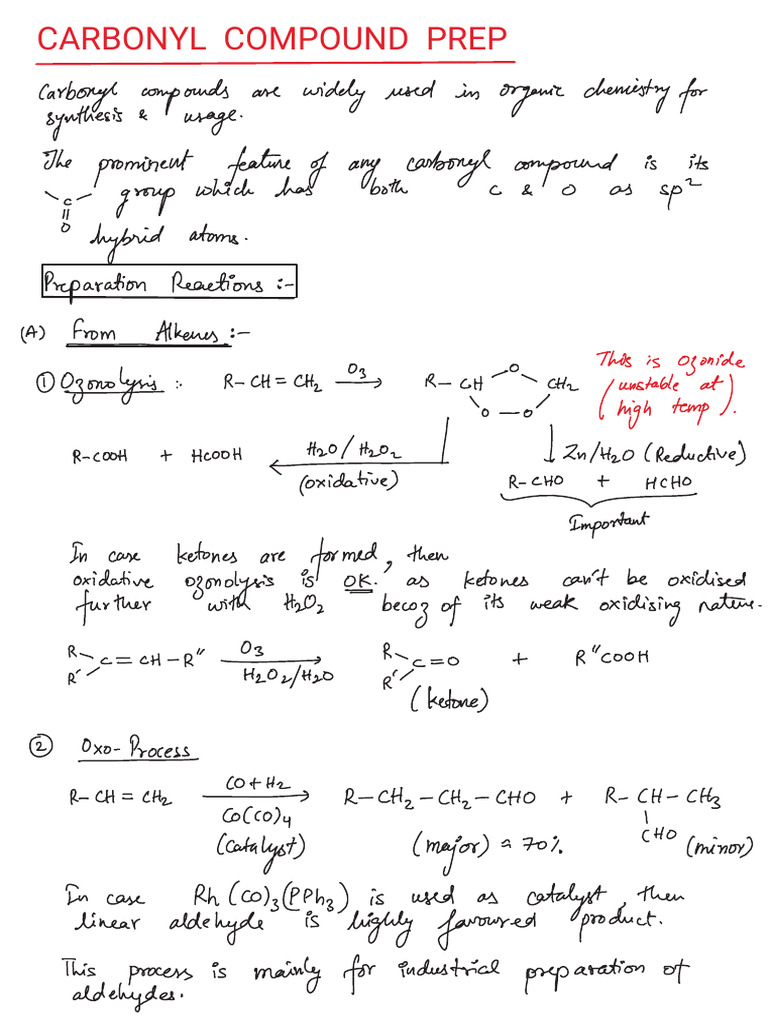 CARBONYL COMPOUND PREP
Carbonyl compounds are widely used in organic chemistry for
synthesis & usage.
The prominent feature of any carbonyl compound is its
-C- group which has both C & O as sp²
||
O
hybrid atoms.
Preparation Reactions :-
(A) From Alkenes :-
① Ozonolysis :- R-CH=CH₂ O₃→ R-CH O CH₂ O-O
This is Ozonide
(unstable at
high temp).
R-COOH + HCOOH ← H₂O/H₂O₂ (oxidative)
↓ Zn/H₂O (Reductive)
R-CHO + HCHO
Important
In case ketones are formed, then
oxidative ozonolysis is OK. as ketones can't be oxidised
further with H₂O₂ becoz of its weak oxidising nature.
R R' C=CH-R" O₃ → H₂O₂/H₂O R R' C=O + R"COOH
(ketone)
② Oxo-Process
R-CH=CH₂ CO+H₂ → Co(CO)₄ R-CH₂-CH₂-CHO + R-CH-CH₃
CHO
(catalyst) (major) ≈ 70% (minor)
In case Rh(CO)₃(PPh₃) is used as catalyst, then
linear aldehyde is highly favoured product.
This process is mainly for industrial preparation of
aldehydes.